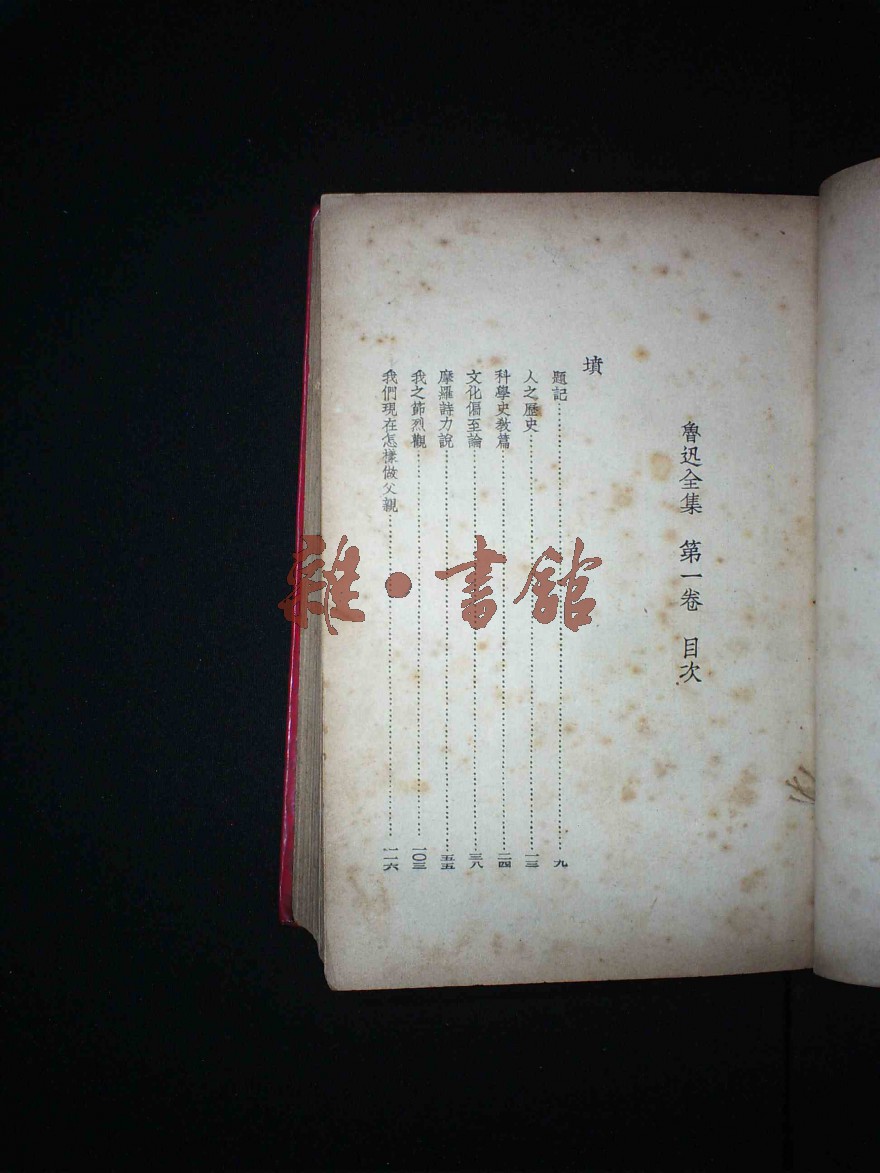 魯迅全集　第一卷　目次
墳
題記……九
人之歷史……一三
科學史敎篇……二四
文化偏至論……三八
摩羅詩力說……五五
我之節烈觀……一〇三
我們現在怎樣做父親……一一六
雜·書館